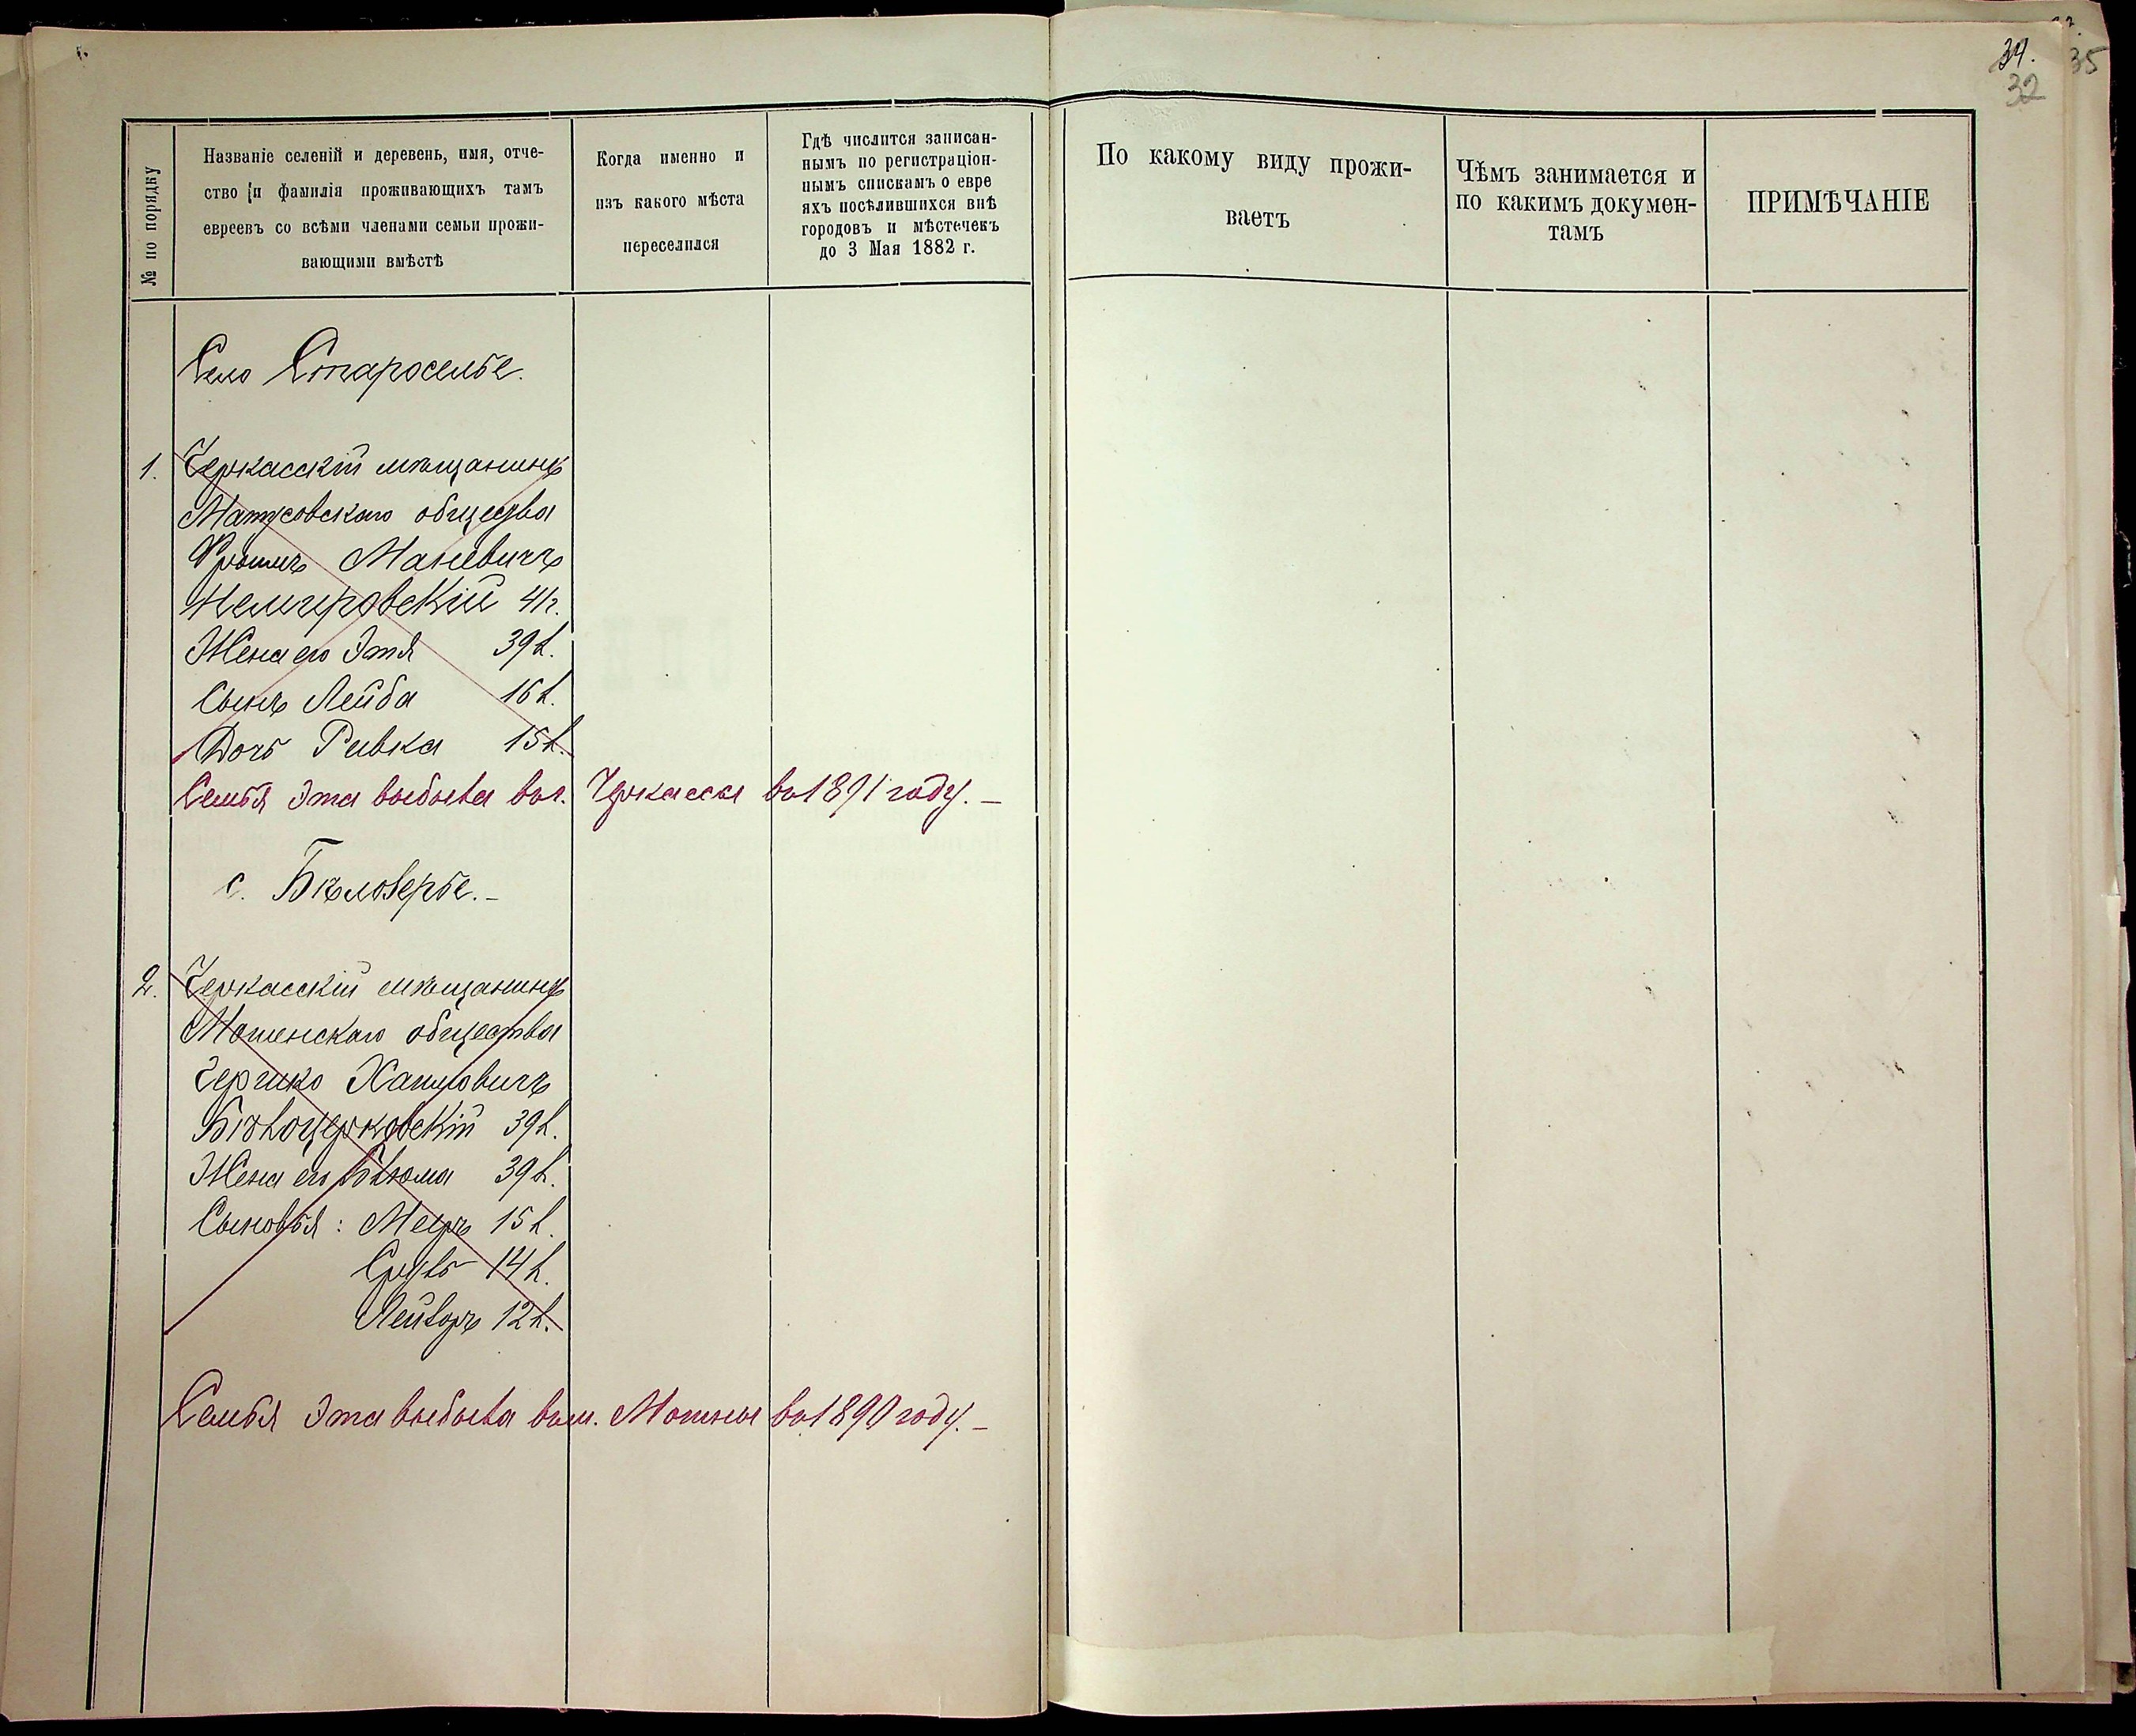 34.
32
35
№ по порядку
Названіе селеній и деревень, имя, отче-
ство и фамилія проживающихъ тамъ
евреевъ со всѣми членами семьи прожи-
вающими вмѣстѣ
Когда именно и
изъ какого мѣста
переселился
Гдѣ числится записан-
нымъ по регистраціон-
нымъ спискамъ о евре
яхъ поселившихся внѣ
городовъ и мѣстечекъ
до 3 Мая 1882 г.
По какому виду прожи-
ваетъ
Чѣмъ занимается и
по какимъ докумен-
тамъ
ПРИМѢЧАНІЕ
Село Староселье.
1. Черкасскій мѣщанинъ
Матусовскаго общества
Фроимъ Маневичъ
Немировскій 41л.
Жена его Этя 39 л.
Сынъ Лейба 16 л.
Дочь Ривка 15 л.
Семья эта выбыла въ г. Черкассы въ 1891 году. —
с. Бѣлозерье. —
2. Черкасскій мѣщанинъ
Мошенскаго общества
Гершко Хаимовичъ
Бѣлоцерковскій 39 л.
Жена его Блюма 39 л.
Сыновья: Меиръ 15 л.
Сруль 14 л.
Лейзоръ 12 л.
Семья эта выбыла въ м. Мошны въ 1890 году. —